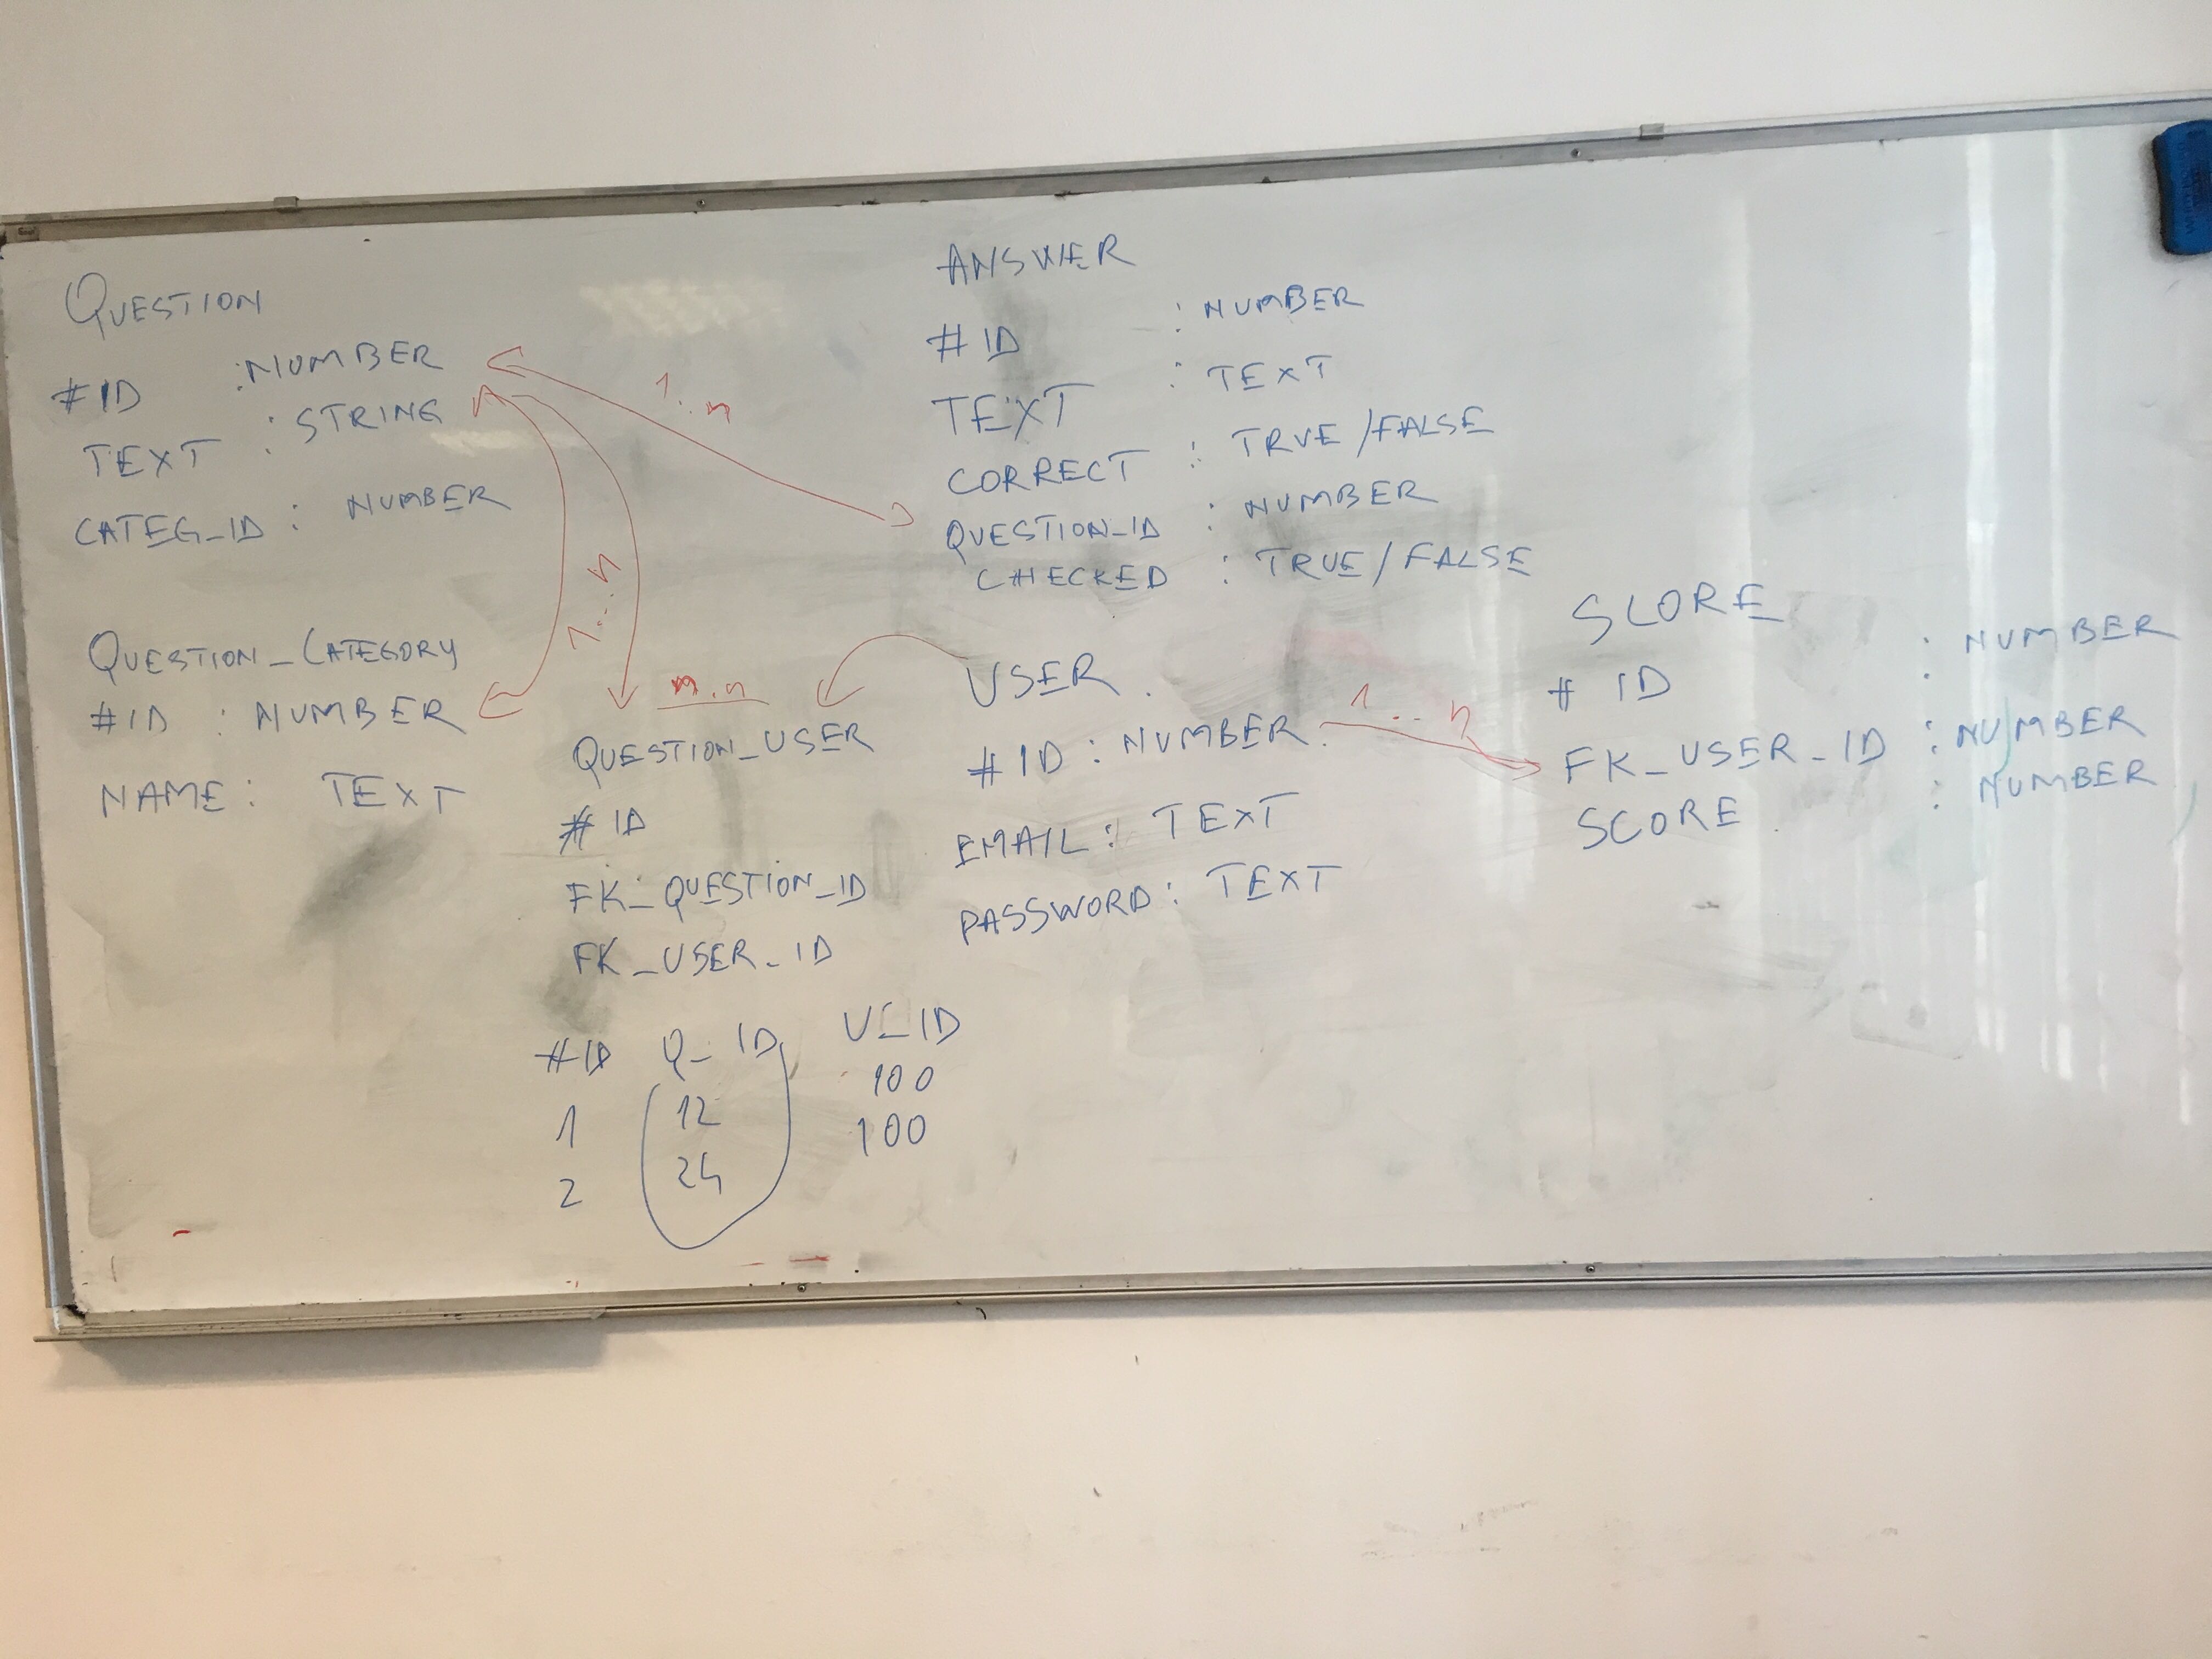 QUESTION
#ID :NUMBER
TEXT : STRING
CATEG_ID : NUMBER
QUESTION_CATEGORY
#ID : NUMBER
NAME : TEXT
1..n
1...n
n.n
QUESTION_USER
#ID
FK_QUESTION_ID
FK_USER_ID
#ID Q_ID U_ID
1 12 100
2 24 100
ANSWER
#ID : NUMBER
TEXT : TEXT
CORRECT : TRUE/FALSE
QUESTION_ID : NUMBER
CHECKED : TRUE/FALSE
USER
#ID : NUMBER
EMAIL : TEXT
PASSWORD : TEXT
1..n
SCORE
# ID : NUMBER
FK_USER_ID : NUMBER
SCORE : NUMBER